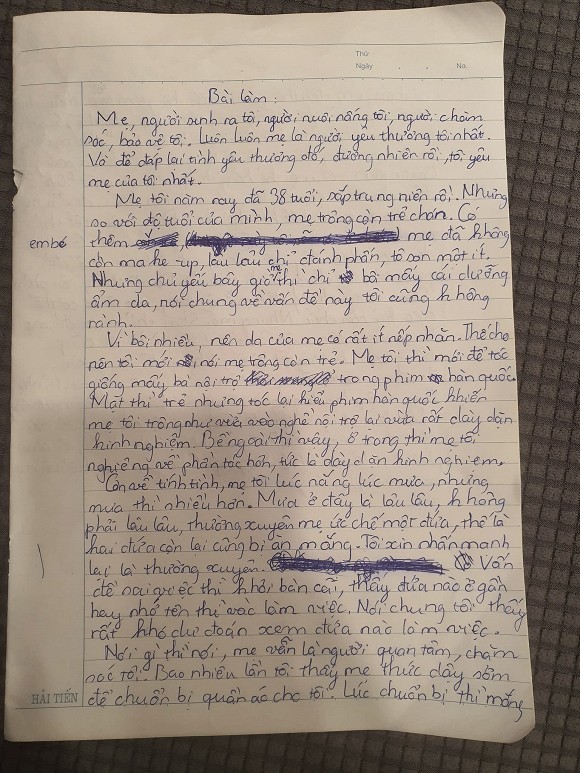 Thứ
Ngày . . No.
Bài làm:
Mẹ, người sinh ra tôi, người nuôi nấng tôi, người chăm
sóc, bảo vệ tôi. Luôn luôn mẹ là người yêu thương tôi nhất.
Và để đáp lại tình yêu thương đó, đương nhiên rồi, tôi yêu
mẹ của tôi nhất.
Mẹ tôi năm nay đã 38 tuổi, sắp trung niên rồi. Nhưng
so với độ tuổi của mình, mẹ trông còn trẻ chán. Có
embé
thêm mẹ đã không
còn make up, lâu lâu chỉ đánh phấn, tô son một ít.
Nhưng chủ yếu bây giờ mẹ thì chỉ bôi mấy cái dưỡng
ẩm da, nói chung về vấn đề này tôi cũng không
rành.
Vì bôi nhiều, nên da của mẹ có rất ít nếp nhăn. Thế cho
nên tôi mới nói mẹ trông còn trẻ. Mẹ tôi thì mới để tóc
giống mấy bà nội trợ trong phim hàn quốc.
Mặt thì trẻ nhưng tóc lại kiểu phim hàn quốc khiến
mẹ tôi trông như vừa vào nghề nội trợ lại vừa rất dày dặn
kinh nghiệm. Bề ngoài thì vậy, ở trong thì mẹ tôi
nghiêng về phần tóc hơn, tức là dày dặn kinh nghiệm.
Còn về tính tình, mẹ tôi lúc nắng lúc mưa, nhưng
mưa thì nhiều hơn. Mưa ở đây là lâu lâu, không
phải lâu lâu, thường xuyên mẹ ức chế một đứa, thế là
hai đứa còn lại cũng bị ăn mắng. Tôi xin nhấn mạnh
lại là thường xuyên. Vấn
đề sai việc thì khỏi bàn cãi, thấy đứa nào ở gần
hay nhớ tên thì vào làm việc. Nói chung tôi thấy
rất khó dự đoán xem đứa nào làm việc.
Nói gì thì nói, mẹ vẫn là người quan tâm, chăm
sóc tôi. Bao nhiêu lần tôi thấy mẹ thức dậy sớm
để chuẩn bị quần áo cho tôi. Lúc chuẩn bị thì mắng
HẢI TIẾN